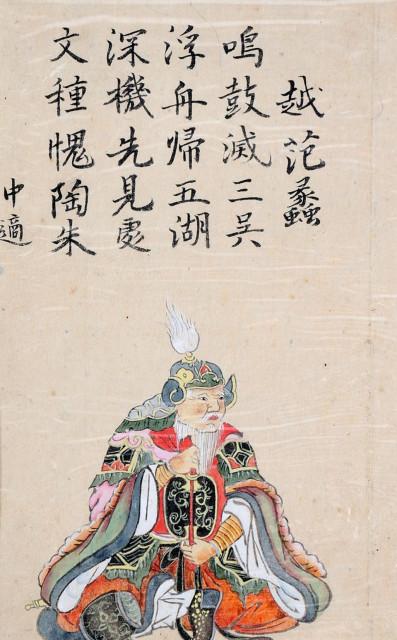 越范蠡
鳴鼓滅三吴
浮舟帰五湖
深機先見處
文種愧陶朱
中適